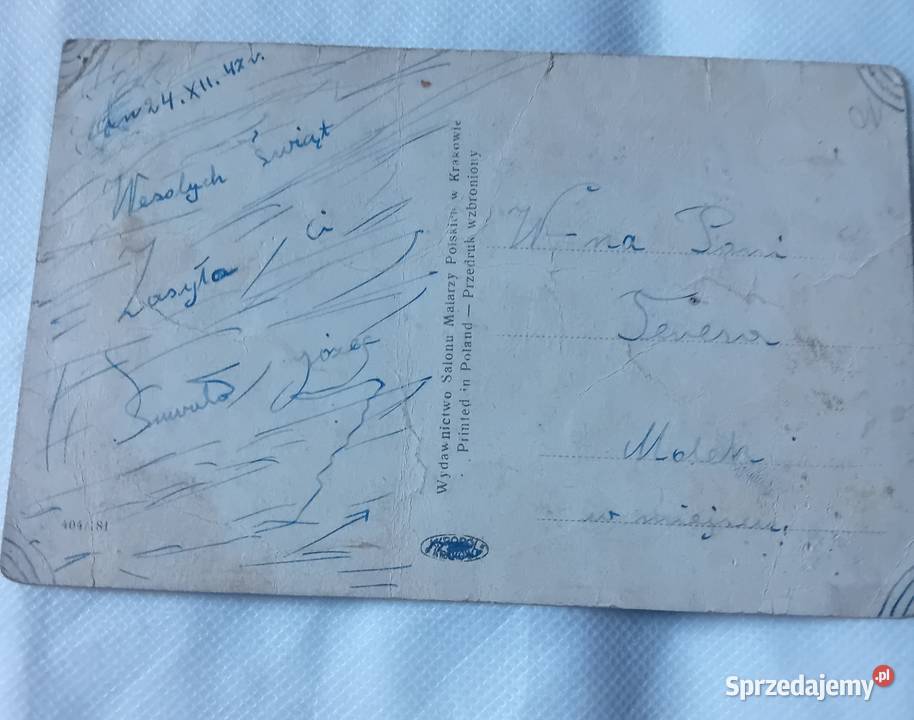 24.XII.47 r.
Wesołych Świąt
Zasyła Ci
Józef
404/181
Wydawnictwo Salonu Malarzy Polskich w Krakowie
Printed in Poland — Przedruk wzbroniony
W-na Pani
Terera
Małek
w miejscu.
Sprzedajemy.pl